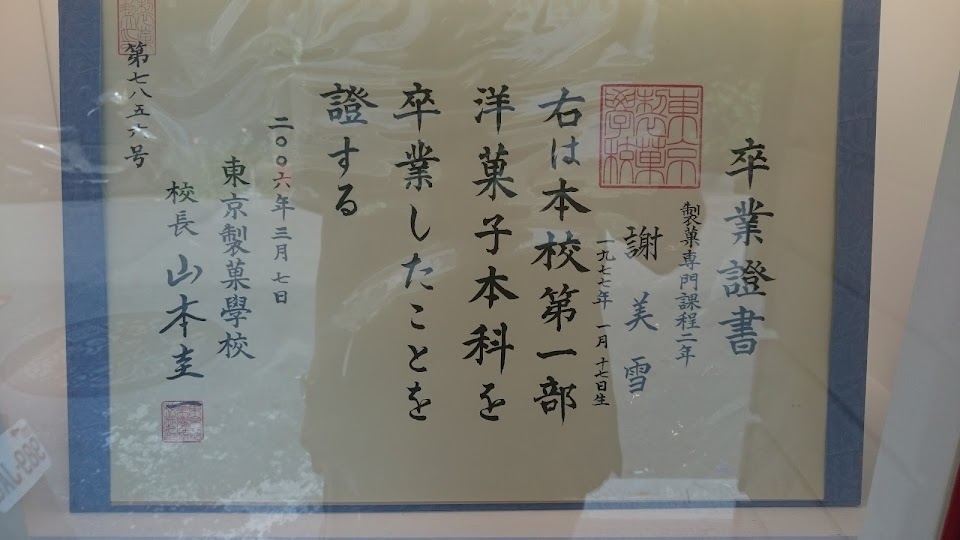 卒業證書
製菓専門課程二年
謝美雪
一九七七年一月十七日生
東京製菓學校
右は本校第一部
洋菓子本科を
卒業したことを
證する
二〇〇六年三月七日
東京製菓學校
校長 山本圭
第七八五六号